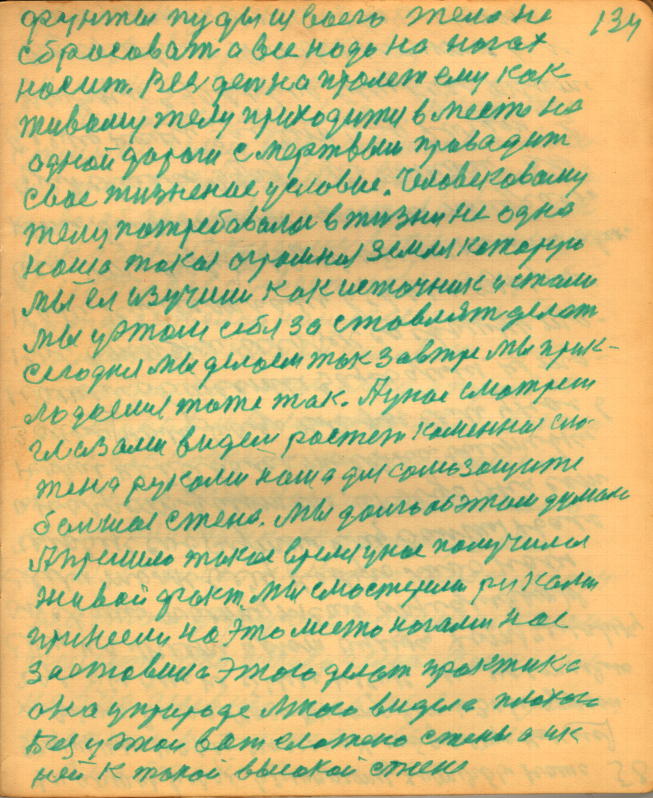 134
фунты пуды и своего тела не
сбросоват а все нодо на ногах
носит. Вес ден на пролет ему как
живому телу приходится вместо на
одной дороги с мертвым провадит
свое жизненое условие. Человековому
телу потребавалос в жизни не одна
наша такая огромная земля каторую
мы ее изучили как источник и стали
мы у этом себя заставлят делат
сегодня мы делоем так завтре мы прик-
лодаемся тоже так. А у нас смотреш
глазами видем ростет каменная сло-
жена руками наша для самозащите
болшая стена. Мы долго об этом думали
А пришло такое время у нас получился
живой факт мы смостерили руками
принесли на это место ногами нас
заставила этого делат практика
она у природе много видела плохого
Без у этой вот сложено стены а ик
ней к такой высокой стене